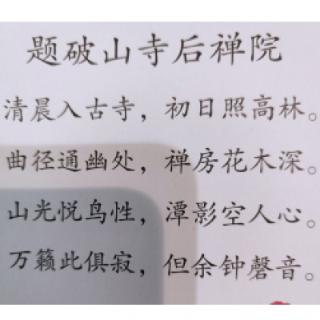 题破山寺后禅院
清晨入古寺，初日照高林。
曲径通幽处，禅房花木深。
山光悦鸟性，潭影空人心。
万籁此俱寂，但余钟磬音。